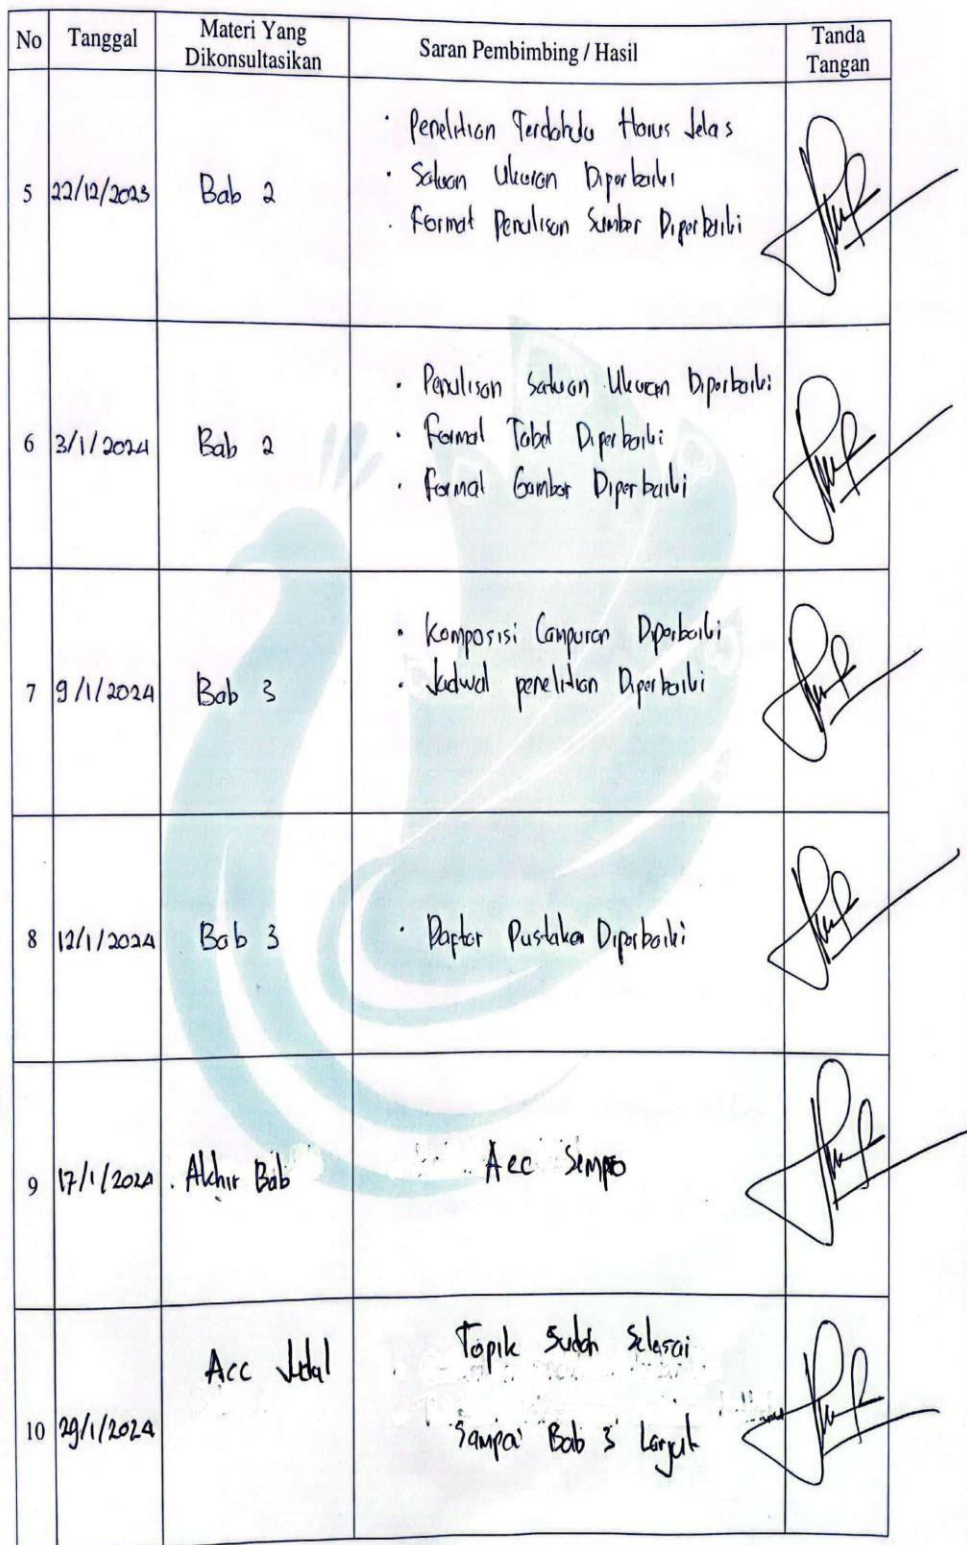 No Tanggal Materi Yang Dikonsultasikan Saran Pembimbing / Hasil Tanda Tangan
5 22/12/2023 Bab 2
· Penelitian Terdahulu Harus Jelas
· Satuan Ukuran Diperbaiki
· Format Penulisan Sumber Diperbaiki
6 3/1/2024 Bab 2
· Penulisan Satuan Ukuran Diperbaiki
· Format Tabel Diperbaiki
· Format Gambar Diperbaiki
7 9/1/2024 Bab 3
· Komposisi Campuran Diperbaiki
· Jadwal penelitian Diperbaiki
8 12/1/2024 Bab 3
· Daftar Pustaka Diperbaiki
9 17/1/2024 Akhir Bab
Acc Sempro
10 29/1/2024 Acc Judul
Topik Sudah Selesai
Sampai Bab 3 Lanjut